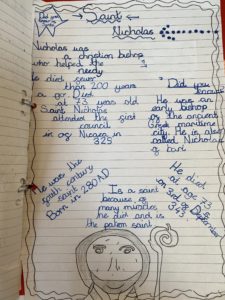 Did you know
Saint
Nicholas
Nicholas was
a christian bishop
who helped the
needy
He died
than 200 years
a go Died
at 73 was old
Saint Nicholas
attended the first
council
in of Nicaea in
325
Did you
He was an
early bishop
of the ancient
Greek maritime
city. He is also
called Nicholas
of bari
He was the
century
saint 280AD
Born in
Is a saint
because of
many miracles
he did and is
the patron saint
He died
at age 73
on 3rd of
343